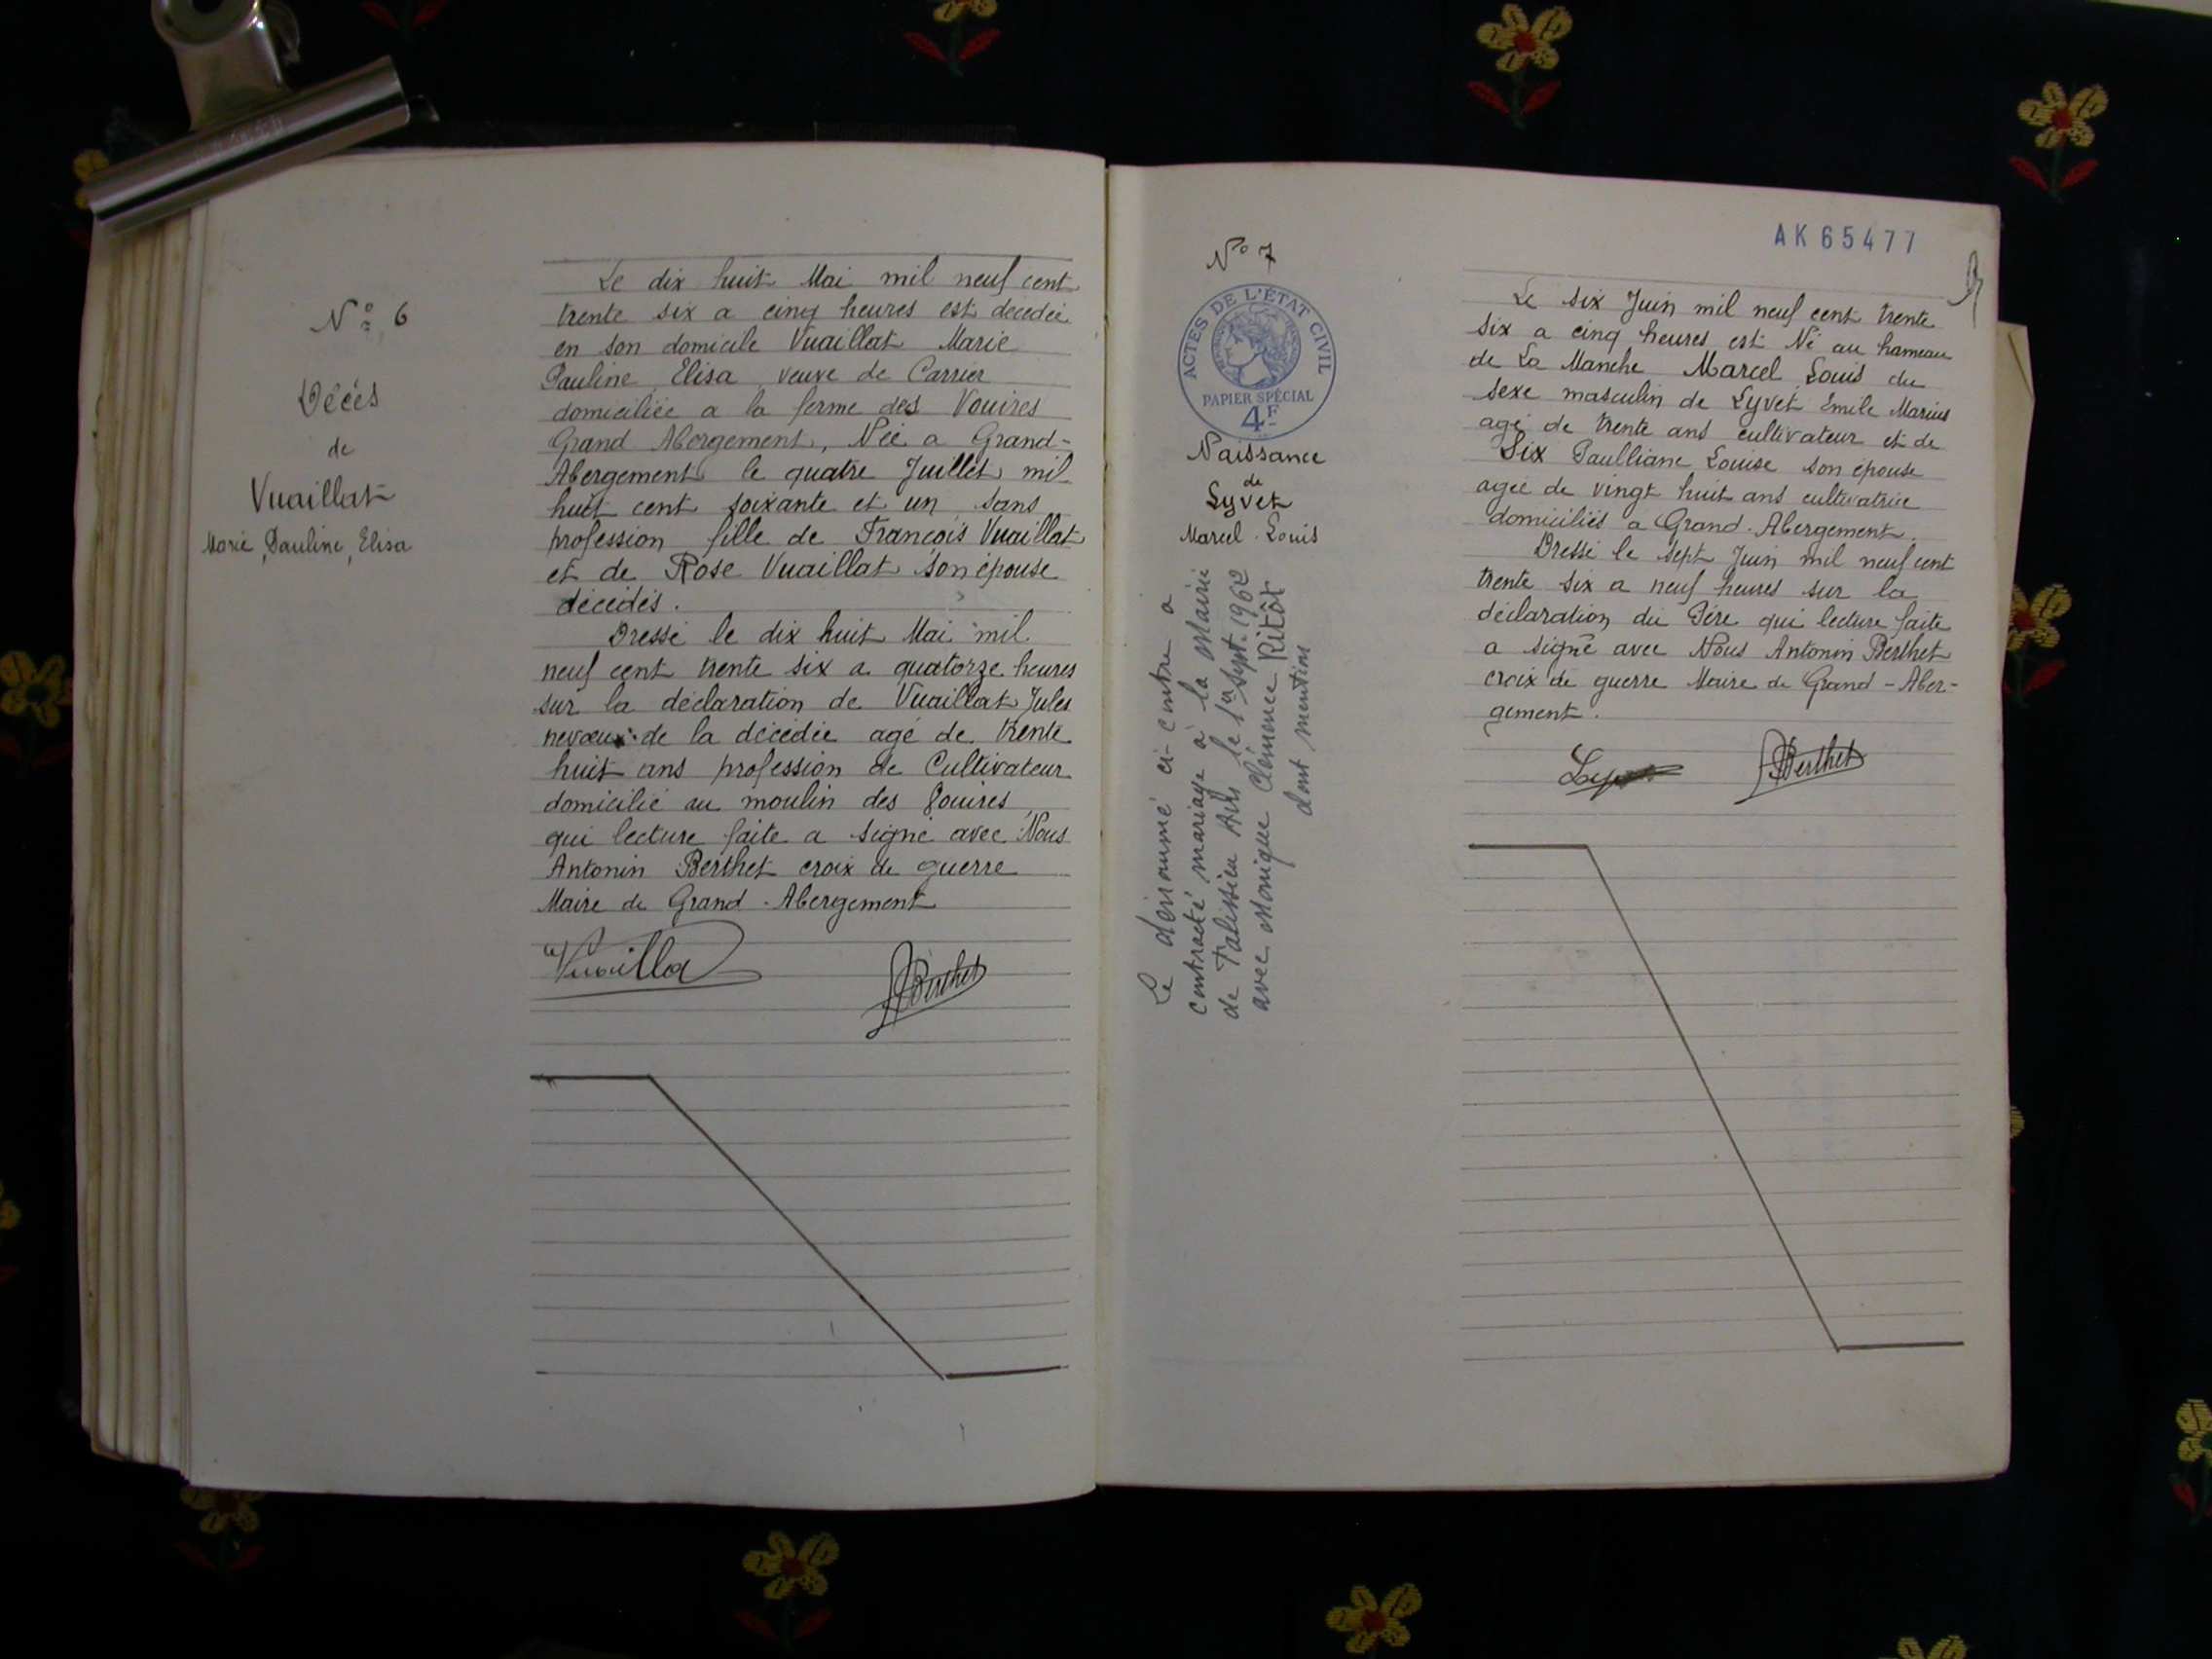 N° 6
Décés
de
Vuaillat
Marie, Pauline, Elisa
Le dix huit Mai mil neuf cent
trente six a cinq heures est décédée
en son domicile Vuaillat Marie
Pauline Elisa veuve de Carrier
domiciliée a la ferme des Vouires
Grand Abergement, Née a Grand-
Abergement le quatre Juillet mil
huit cent soixante et un sans
profession fille de François Vuaillat
et de Rose Vuaillat son épouse
décédés.
Dressé le dix huit Mai mil
neuf cent trente six a quatorze heures
sur la déclaration de Vuaillat Jules
de la décédée agé de trente
huit ans profession de Cultivateur
domicilié au moulin des
qui lecture faite a signé avec Nous
Antonin Berthet croix de guerre
Maire de Grand-Abergement
Vuailla
Berthet
AK 65477
N° 7
ACTES DE L'ÉTAT CIVIL
PAPIER SPÉCIAL
4F
Naissance
de
Lyvet
Marcel-Louis
Le dénommé ci-contre a
contracté mariage à la Mairie
de Talissieu Ain le 1er Sept. 1962
avec Monique Clémence Ritôt
dont mention
Le six Juin mil neuf cent trente
six a cinq heures est Né au hameau
de La Manche Marcel Louis du
sexe masculin de Lyvet Emile Marius
agé de trente ans cultivateur et de
Six Paulliane Louise son épouse
agée de vingt huit ans cultivatrice
domiciliés a Grand-Abergement.
Dressé le sept Juin mil neuf cent
trente six a neuf heures sur la
déclaration du Père qui lecture faite
a signé avec Nous Antonin Berthet
croix de guerre Maire de Grand-Aber-
gement.
Berthet